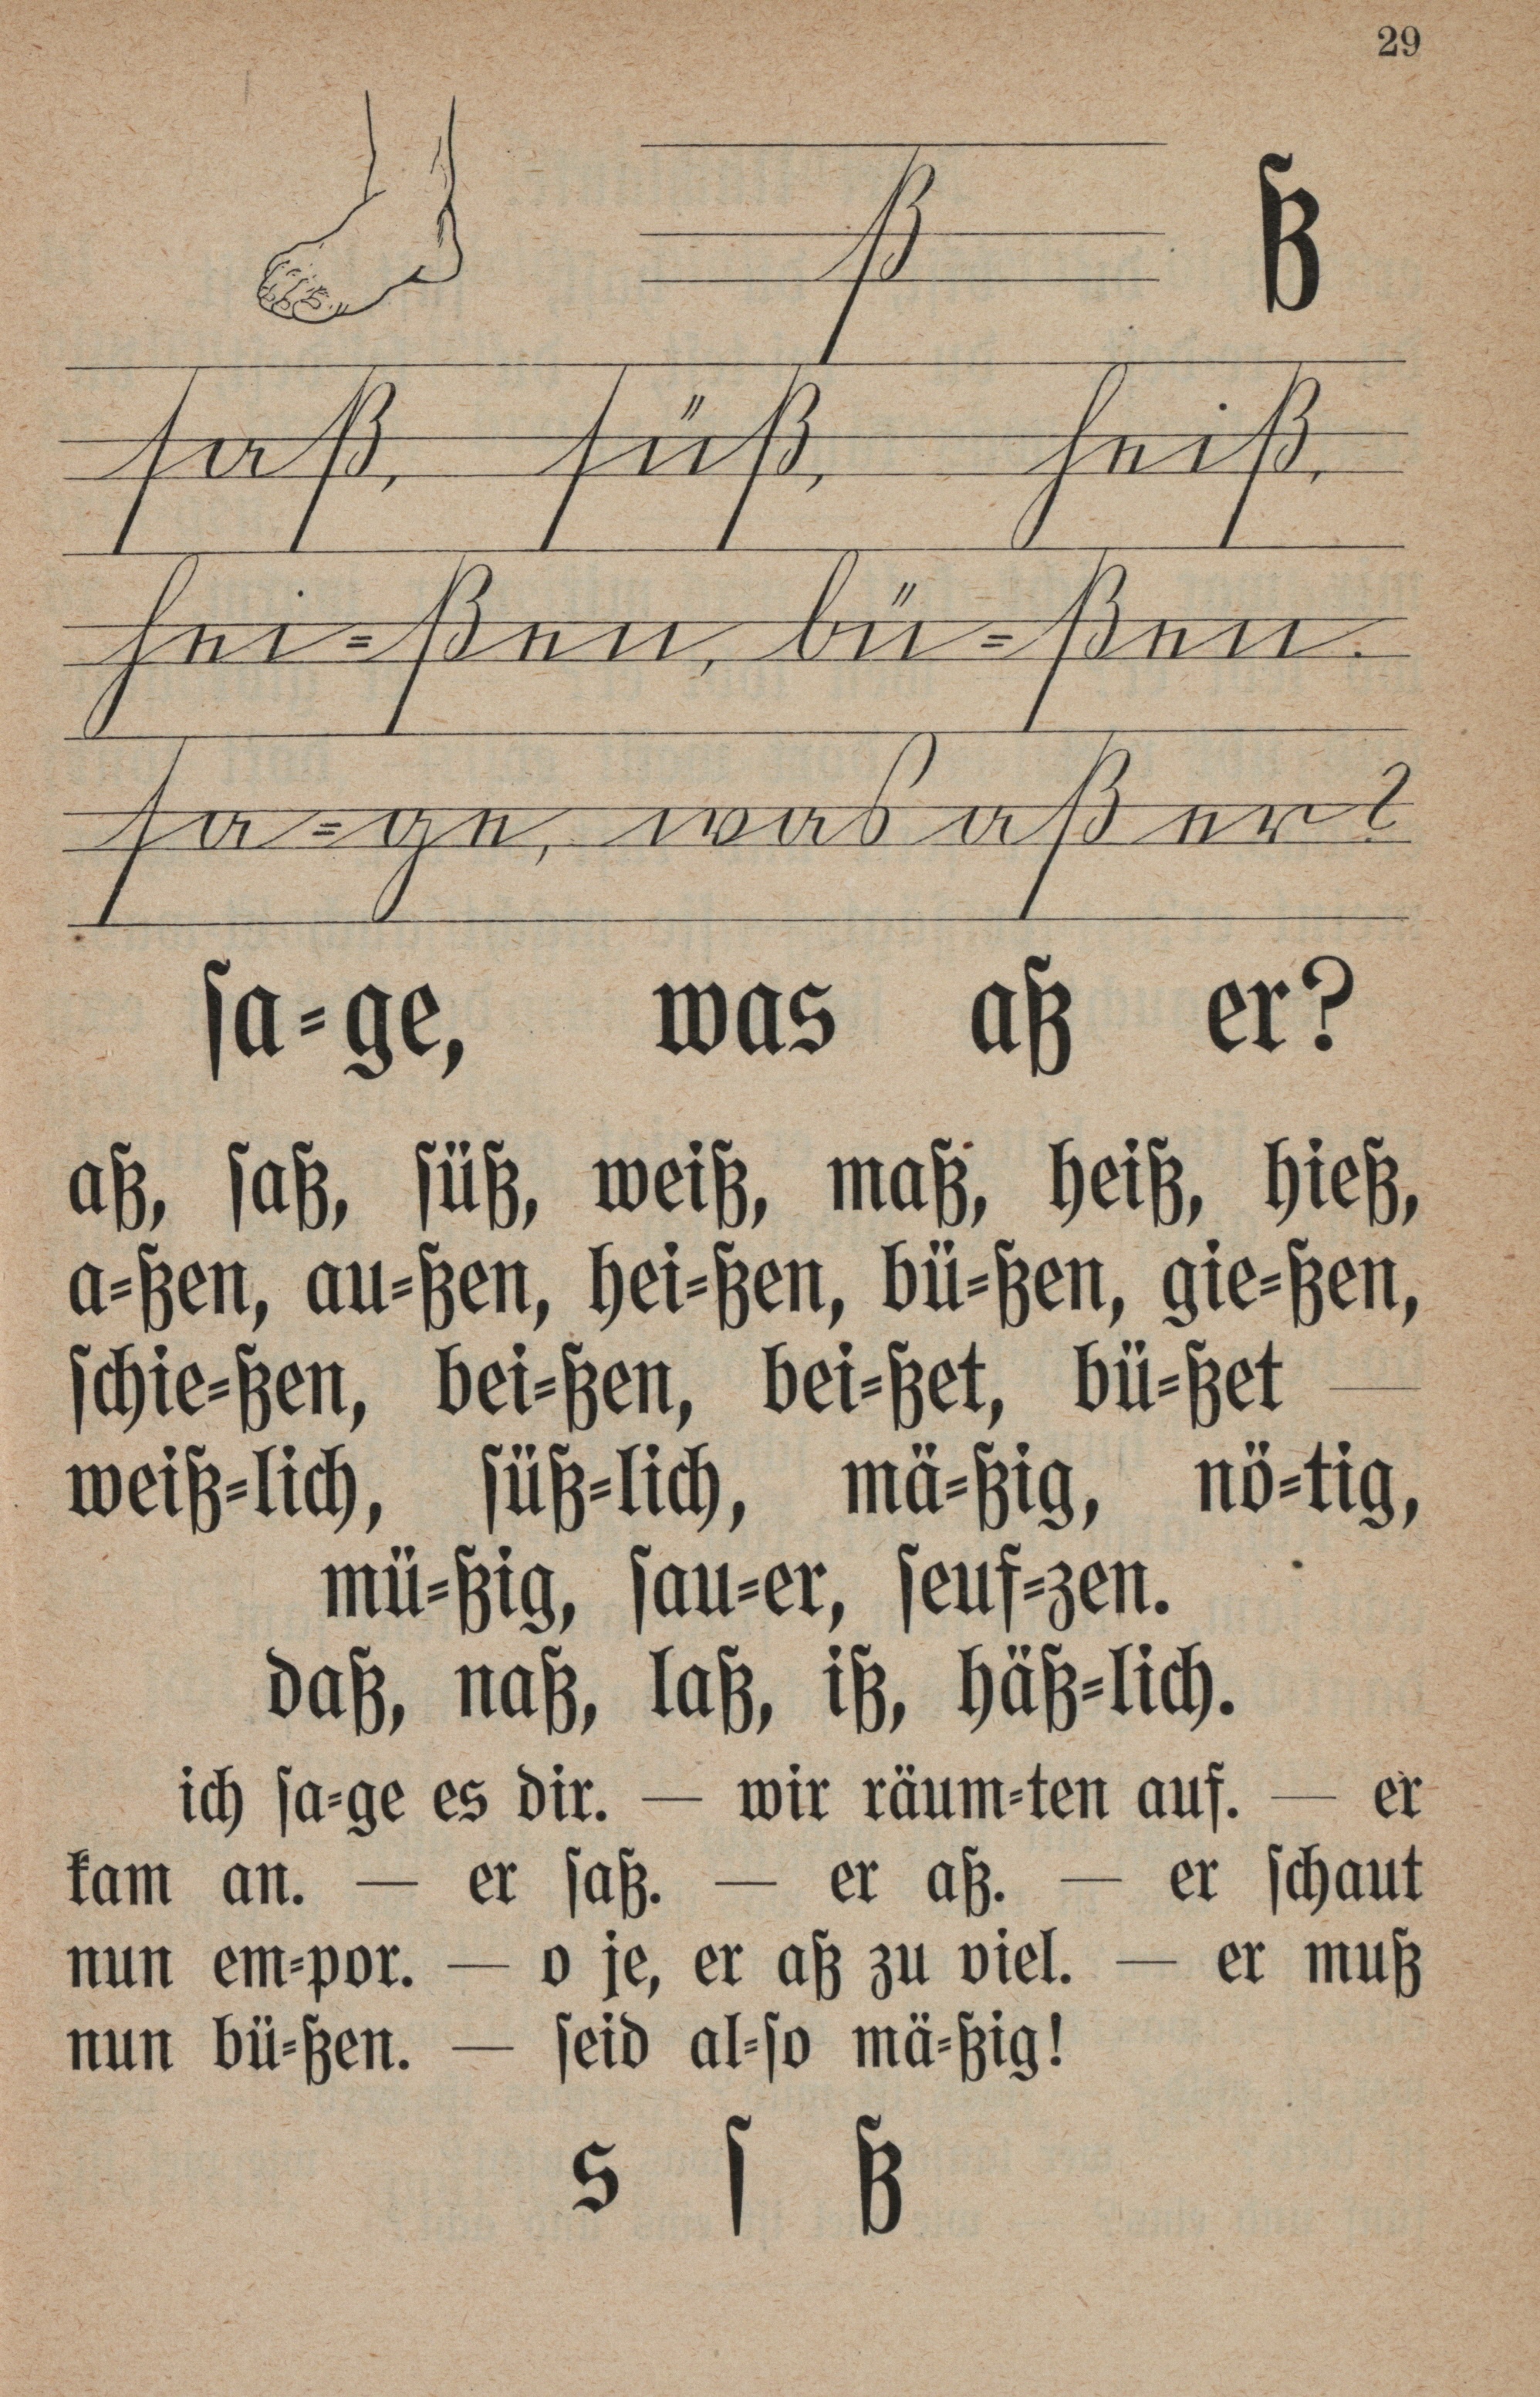 29
ß ß
saß, süß, heiß,
hei=ßen, bü=ßen.
sa=ge, was aß er?
ſa=ge, was aß er?
aß, ſaß, ſüß, weiß, maß, heiß, hieß,
a=ßen, au=ßen, hei=ßen, bü=ßen, gie=ßen,
ſchie=ßen, bei=ßen, bei=ßet, bü=ßet —
weiß=lich, ſüß=lich, mä=ßig, nö=tig,
mü=ßig, ſau=er, ſeuf=zen.
daß, naß, laß, iß, häß=lich.
ich ſa=ge es dir. — wir räum=ten auf. — er
kam an. — er ſaß. — er aß. — er ſchaut
nun em=por. — o je, er aß zu viel. — er muß
nun bü=ßen. — ſeid al=ſo mä=ßig!
s ſ ß